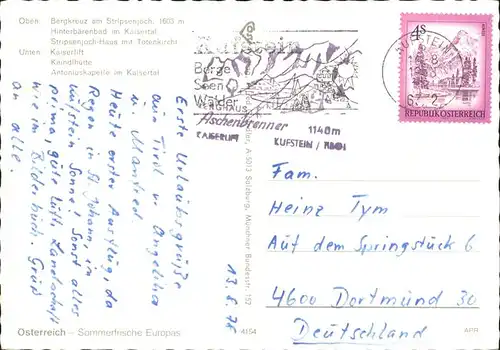 Oben: Bergkreuz am Stripsenjoch, 1603 m
Hinterbärenbad im Kaisertal
Stripsenjoch-Haus mit Totenkirchl
Unten: Kaiserlift
Kaindlhütte
Antoniuskapelle im Kaisertal
Kufstein
Berge
Seen
Wälder
4S
REPUBLIK ÖSTERREICH
KUFSTEIN
Aschenbrenner
1140m
KAISERLIFT
KUFSTEIN / TIROL
13.8.78
Erste Urlaubsgrüße
aus Tirol v. Angelika
u. Manfred.
Heute erster Ausflug, da
Regen in St. Johann, in
Kufstein Sonne! Sonst alles
prima, gute Luft, Landschaft
wie im Bilderbuch. Gruß
an alle.
A 5013 Salzburg, Münchner Bundesstr. 157
Fam.
Heinz Tym
Auf dem Springstück 6
4600 Dortmund 30
Deutschland
Österreich – Sommerfrische Europas
4/54
APR